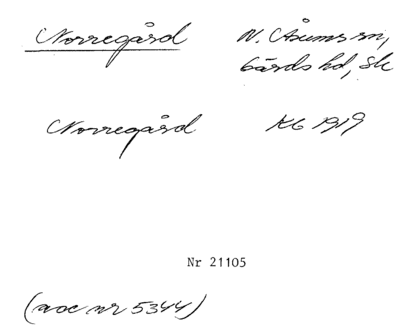 Norregård N. Åsums sn,
Gärds hd, Sk
Norregård Kb 1919
Nr 21105
(acc nr 5344)